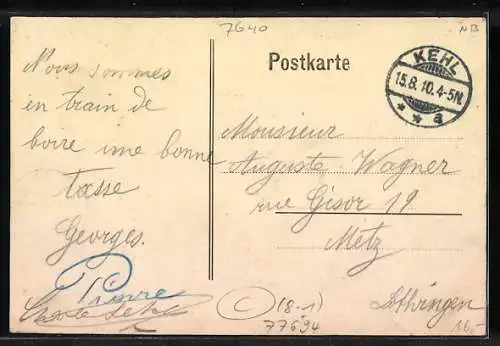 7640
NB
Postkarte
KEHL
15.8.10.4-5N.
* * a
Nous sommes
en train de
boire une bonne
tasse
Georges.
Pierre
Monsieur
Auguste Wagner
rue Gisor 19
Metz
Lothringen
C (8-1)
77694
16,-